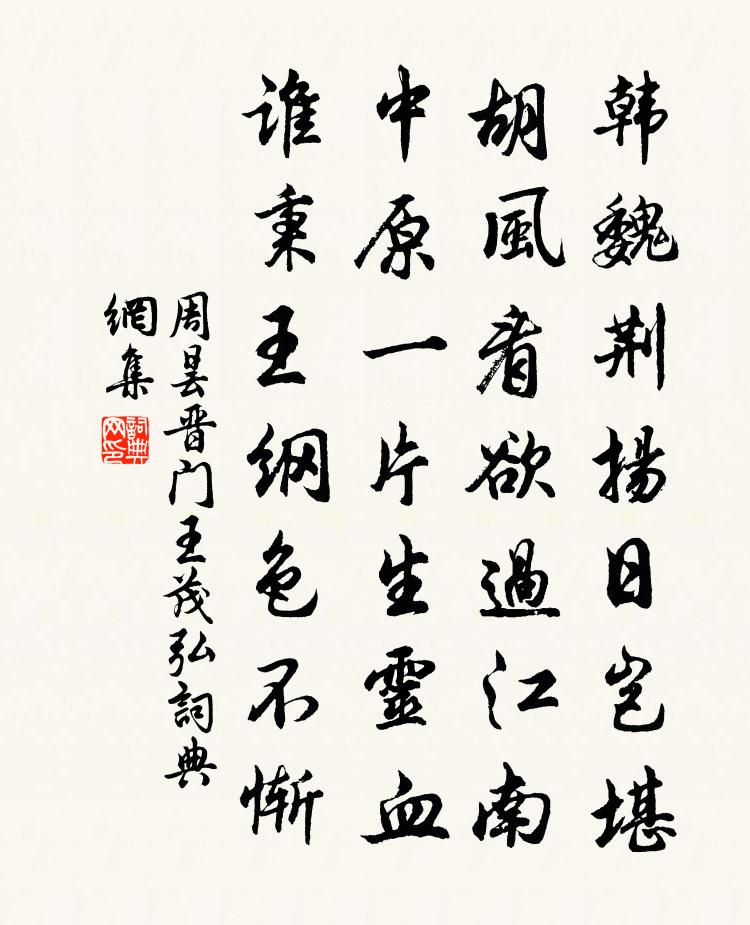 韩魏荆揚日岂堪
胡風看欲過江南
中原一片生靈血
谁秉王纲色不惭
周昙晋门王茂弘詞典
網集
詞典
网印